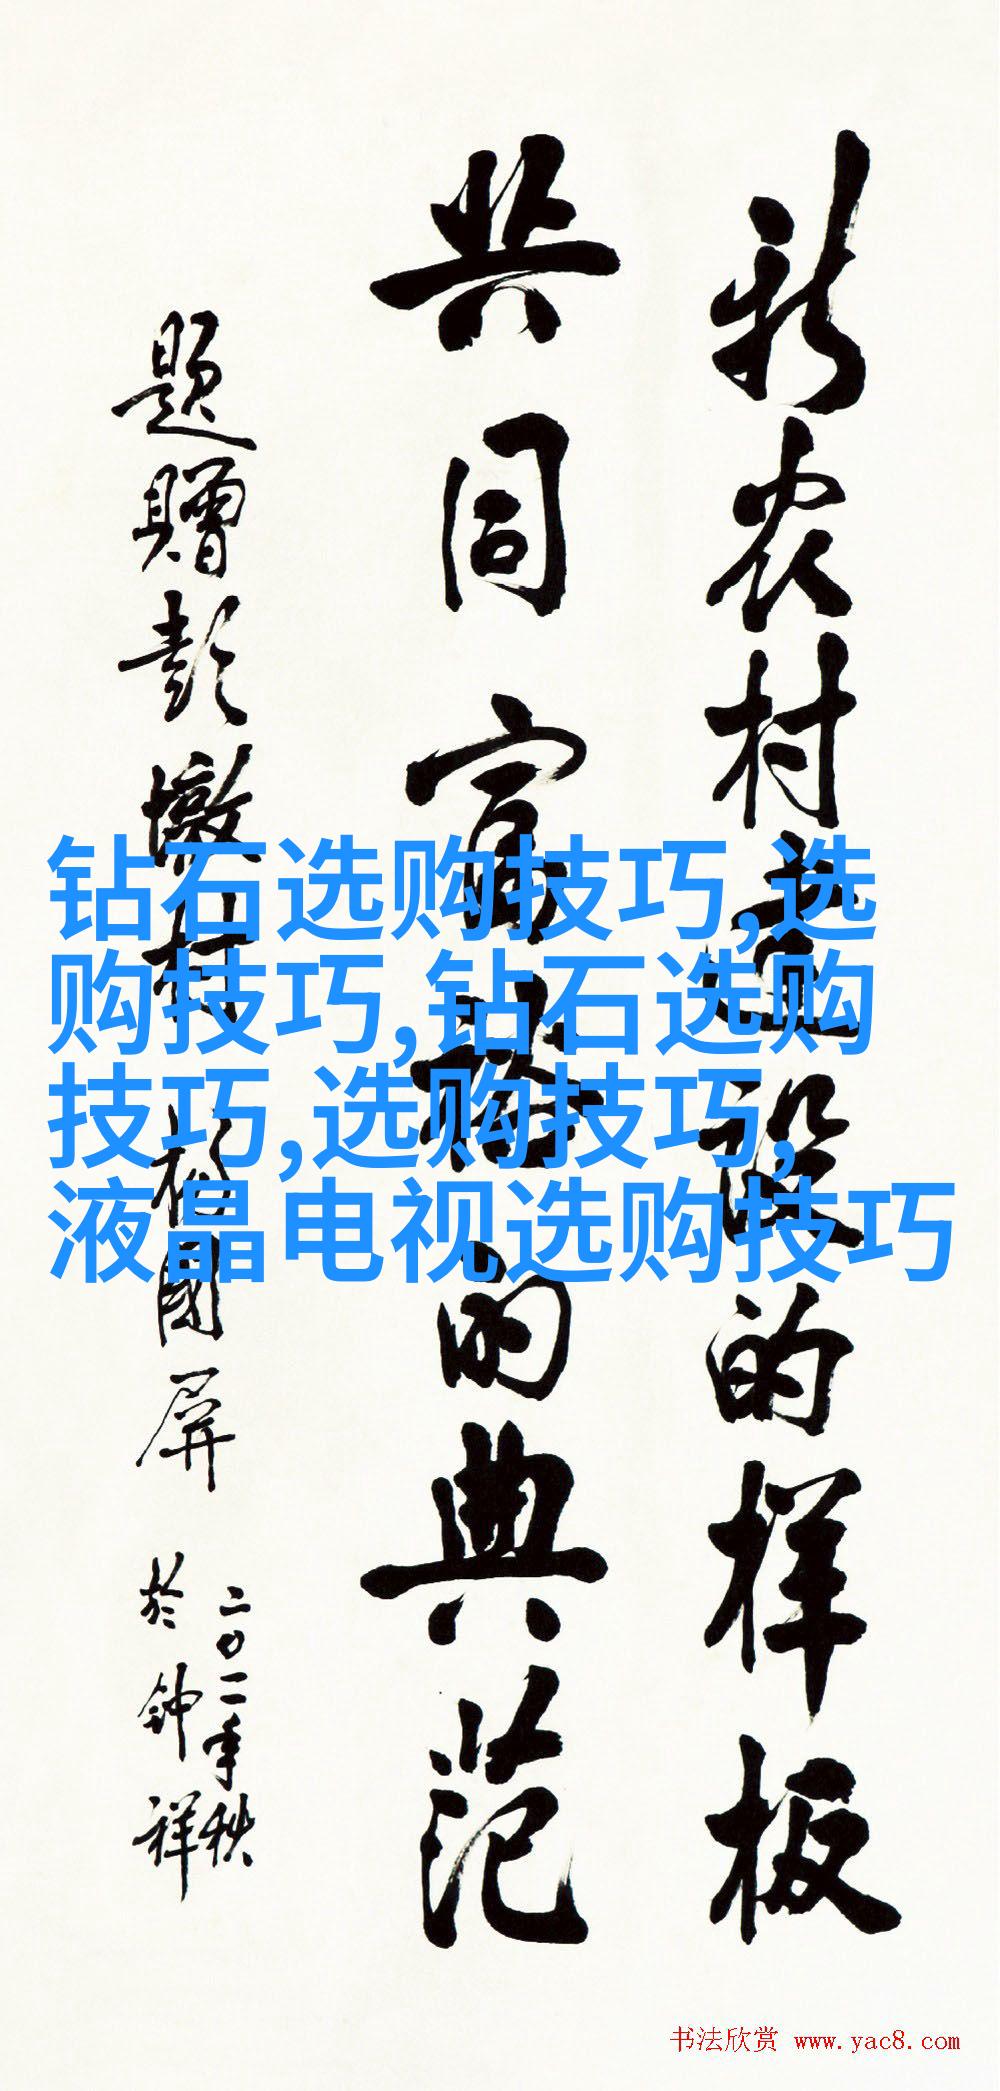 新农村建设的样板
共同富裕的典范
题赠彭墩村 杨国屏
二〇一一年秋
於钟祥
钻石选购技巧,选
购技巧,钻石选购
技巧,选购技巧,
液晶电视选购技巧
书法欣赏 www.yac8.com